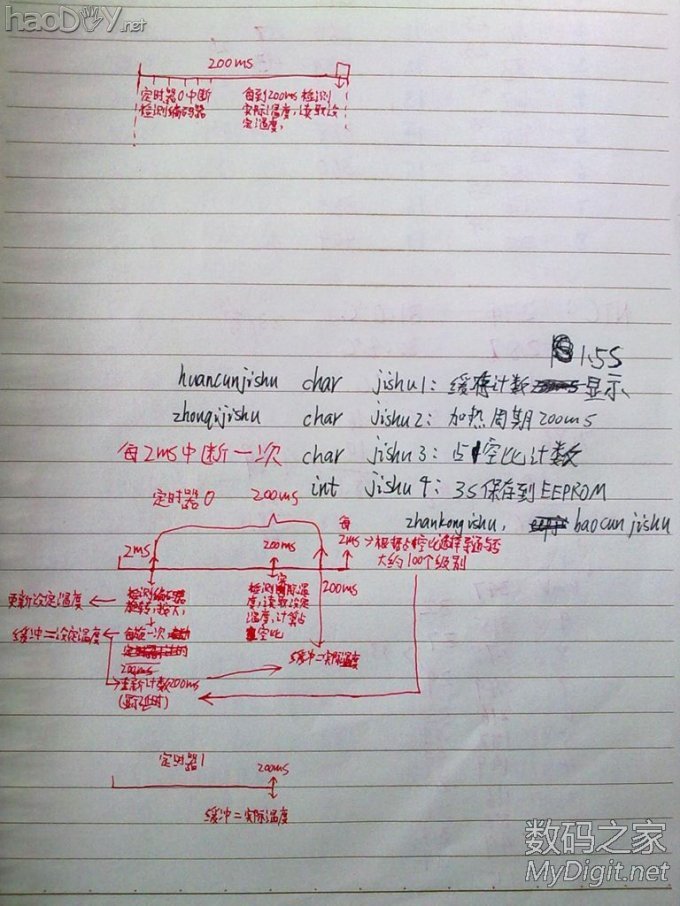 haoDIY.net
200ms
定时器0中断
检测编码器
每到200ms检测
实际温度,读取设
定温度,
1.5S
huancunjishu char jishu1: 缓存计数 显示
zhouqijishu char jishu2: 加热周期200ms
每2ms中断一次 char jishu3: 占空比计数
int jishu4: 3S保存到EEPROM
zhankongjishu, baocunjishu
定时器0 200ms
2ms
200ms
每
2ms→根据占空比选择导通与否
大约100个级别
更新设定温度
检测编码器
旋转,按下,
检测实际温
度,读取设定
温度,计算占
空比
200ms
缓冲=设定温度
每旋一次
200ms
重新计数200ms
(显示延时)
缓冲=实际温度
定时器1
200ms
缓冲=实际温度
数码之家
MyDigit.net